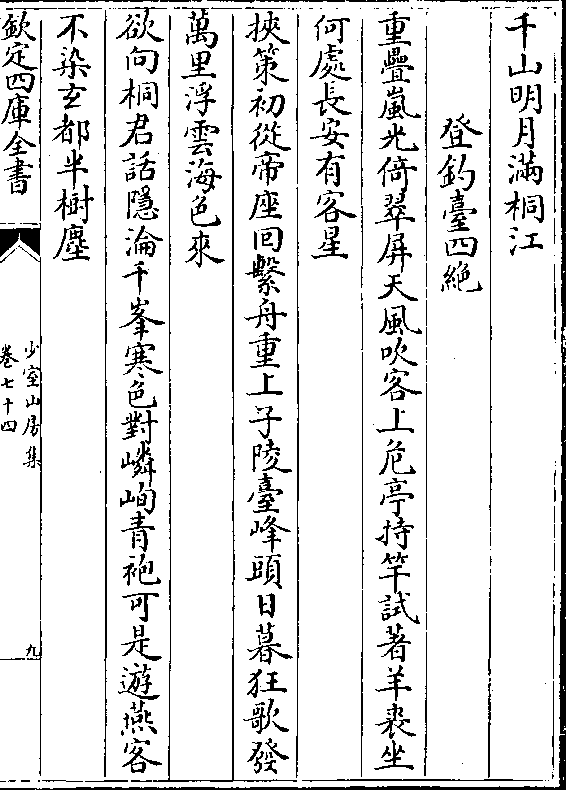 千山明月滿桐江
登釣臺四絶
重疊嵐光倚翠屏天風吹客上危亭持竿試著羊裘坐
何處長安有客星
挾策初從帝座回繫舟重上子陵臺峰頭日暮狂歌發
萬里浮雲海色來
欲向桐君話隱淪千峯寒色對嶙峋青袍可是遊燕客
不染玄都半樹塵
欽定四庫全書
少室山房集
卷七十四
九